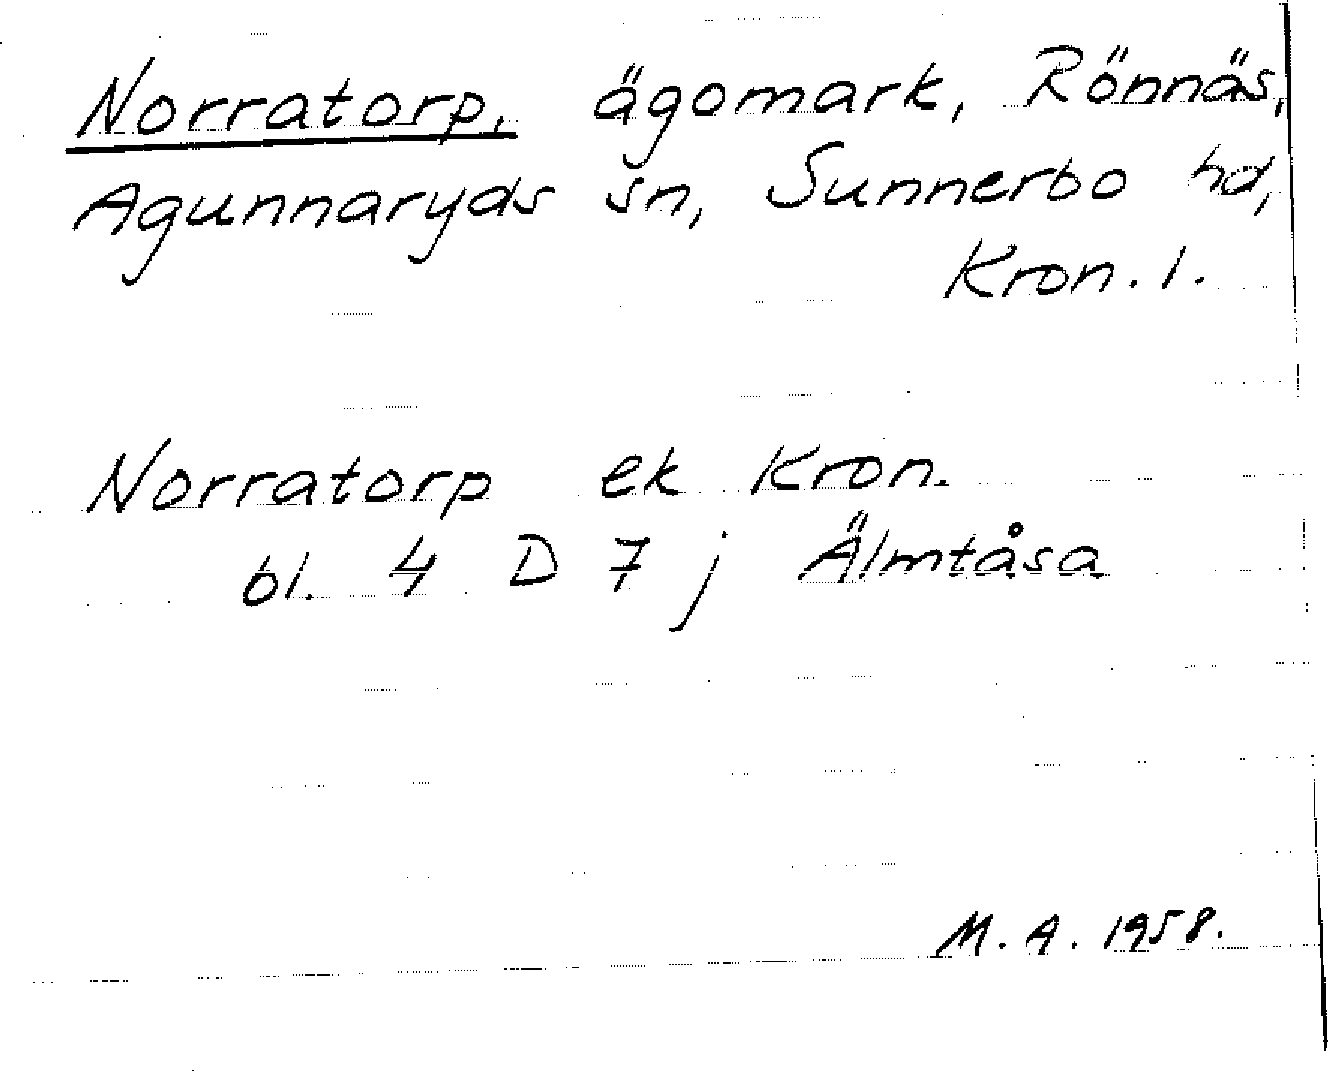 Norratorp, ägomark, Rönnäs,
Agunnaryds sn, Sunnerbo hd,
Kron. l.
Norratorp ek Kron.
bl. 4 D 7 j Älmtåsa
M. A. 1958.